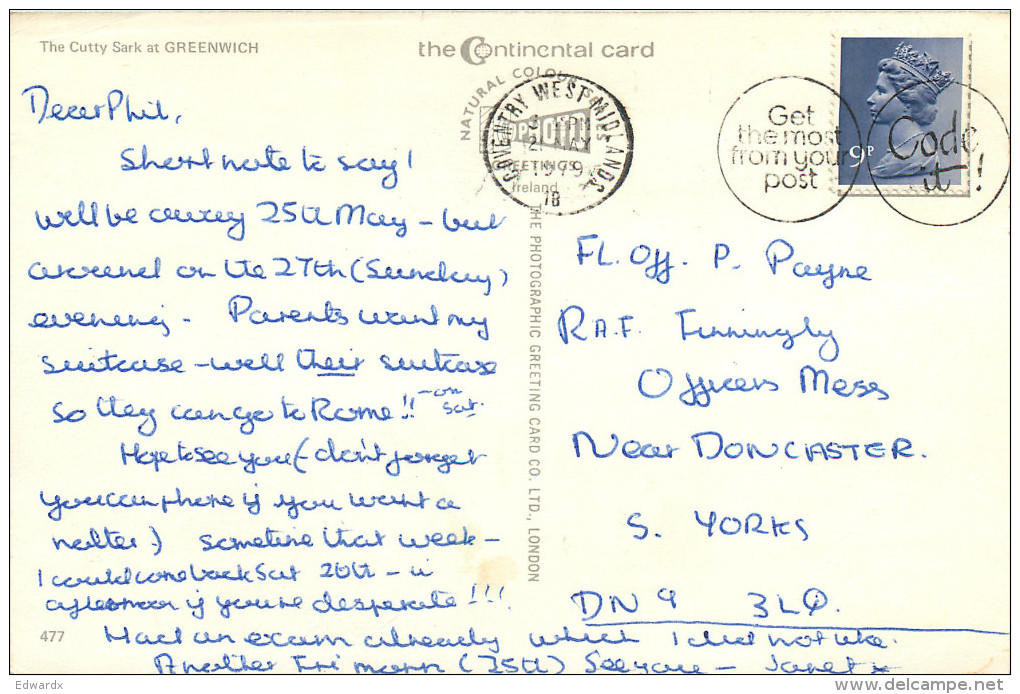 The Cutty Sark at GREENWICH
the Continental card
NATURAL COLOUR
GREETINGS
Ireland
COVENTRY WEST MIDLANDS
1979
Get
the most
from your
post
Code
it!
9P
THE PHOTOGRAPHIC GREETING CARD CO. LTD., LONDON
Dear Phil,
Short note to say I
will be away 25th May - but
around on the 27th (Sunday)
evening - Parents want my
suitcase - well their suitcase
so they can go to Rome!! - on
Sat.
Hope to see you (- don't forget
you can phone if you want a
natter) sometime that week -
I could come back Sat 26th - in
afternoon if you're desperate!!!
Had an exam already which I did not like.
Another Fri morn (25th) See you - Janet x
FL. Off. P. Payne
R.A.F. Finningly
Officers Mess
Near DONCASTER.
S. YORKS
DN9 3LQ.
477
Edwardx